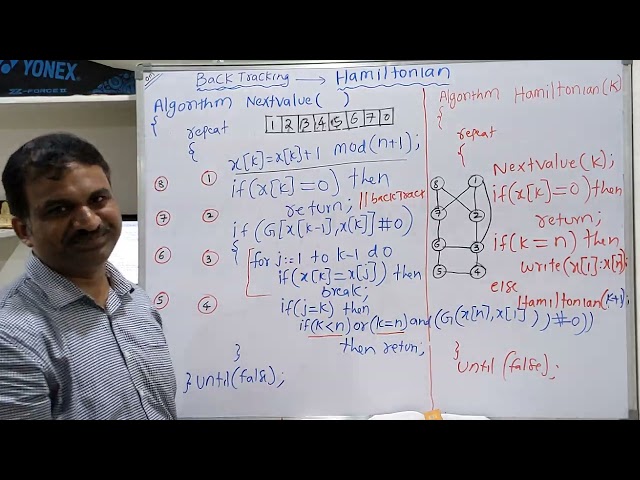 YONEX
ZZ-FORCE II
Back Tracking → Hamiltonian
Algorithm Nextvalue( )
{
repeat
1 2 3 4 5 6 7 0
{
x[k]=x[k]+1 mod(n+1);
8 1
if(x[k]=0) then
return; ||backtrack
7 2
if(G[x[k-1],x[k]]#0)
{
6 3
for j:=1 to k-1 do
if(x[k]=x[j]) then
break;
5 4
if(j=k) then
if(k<n)or(k=n)and(G(x[n],x[1]))#0))
then retun;
}
}until(false);
Algorithm Hamiltonian(k)
{
repeat
{
Nextvalue(k);
if(x[k]=0)then
return;
if(k=n) then
write(x[1]:x[n];
else
Hamiltonian(k+1);
}
until (false);
8 1
7 2
6 3
5 4